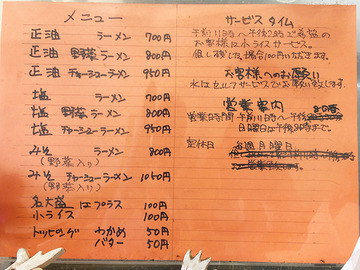 メニュー
正油 ラーメン 700円
正油 野菜ラーメン 800円
正油 チャーシューラーメン 950円
塩 ラーメン 700円
塩 野菜ラーメン 800円
塩 チャーシューラーメン 950円
みそ ラーメン 800円
(野菜入り)
みそ チャーシューラーメン 1050円
(野菜入り)
各大盛はプラス 100円
小ライス 100円
トッピング わかめ 50円
バター 50円
サービスタイム
午前11時〜午後2時ご来店の
お客様に小ライスサービス。
但し残した場合100円いただきます。
お客様へのお願い
水はセルフサービスでお願い致します。
営業案内
営業時間 午前11時〜午後
日曜日は午後 時まで。
定休日 毎週月曜日